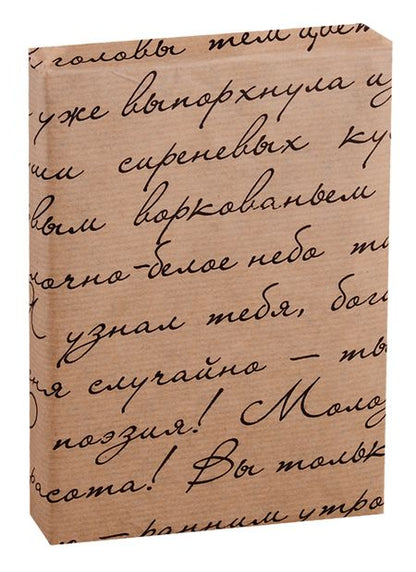 головы тем цвет
уже выпорхнула из
ши сиреневых ку
вым воркованьем
лочно-белое небо та
Я узнал тебя, боги
ня случайно – ты
поэзия! Молод
расота! Вы тольк
– ранним утро